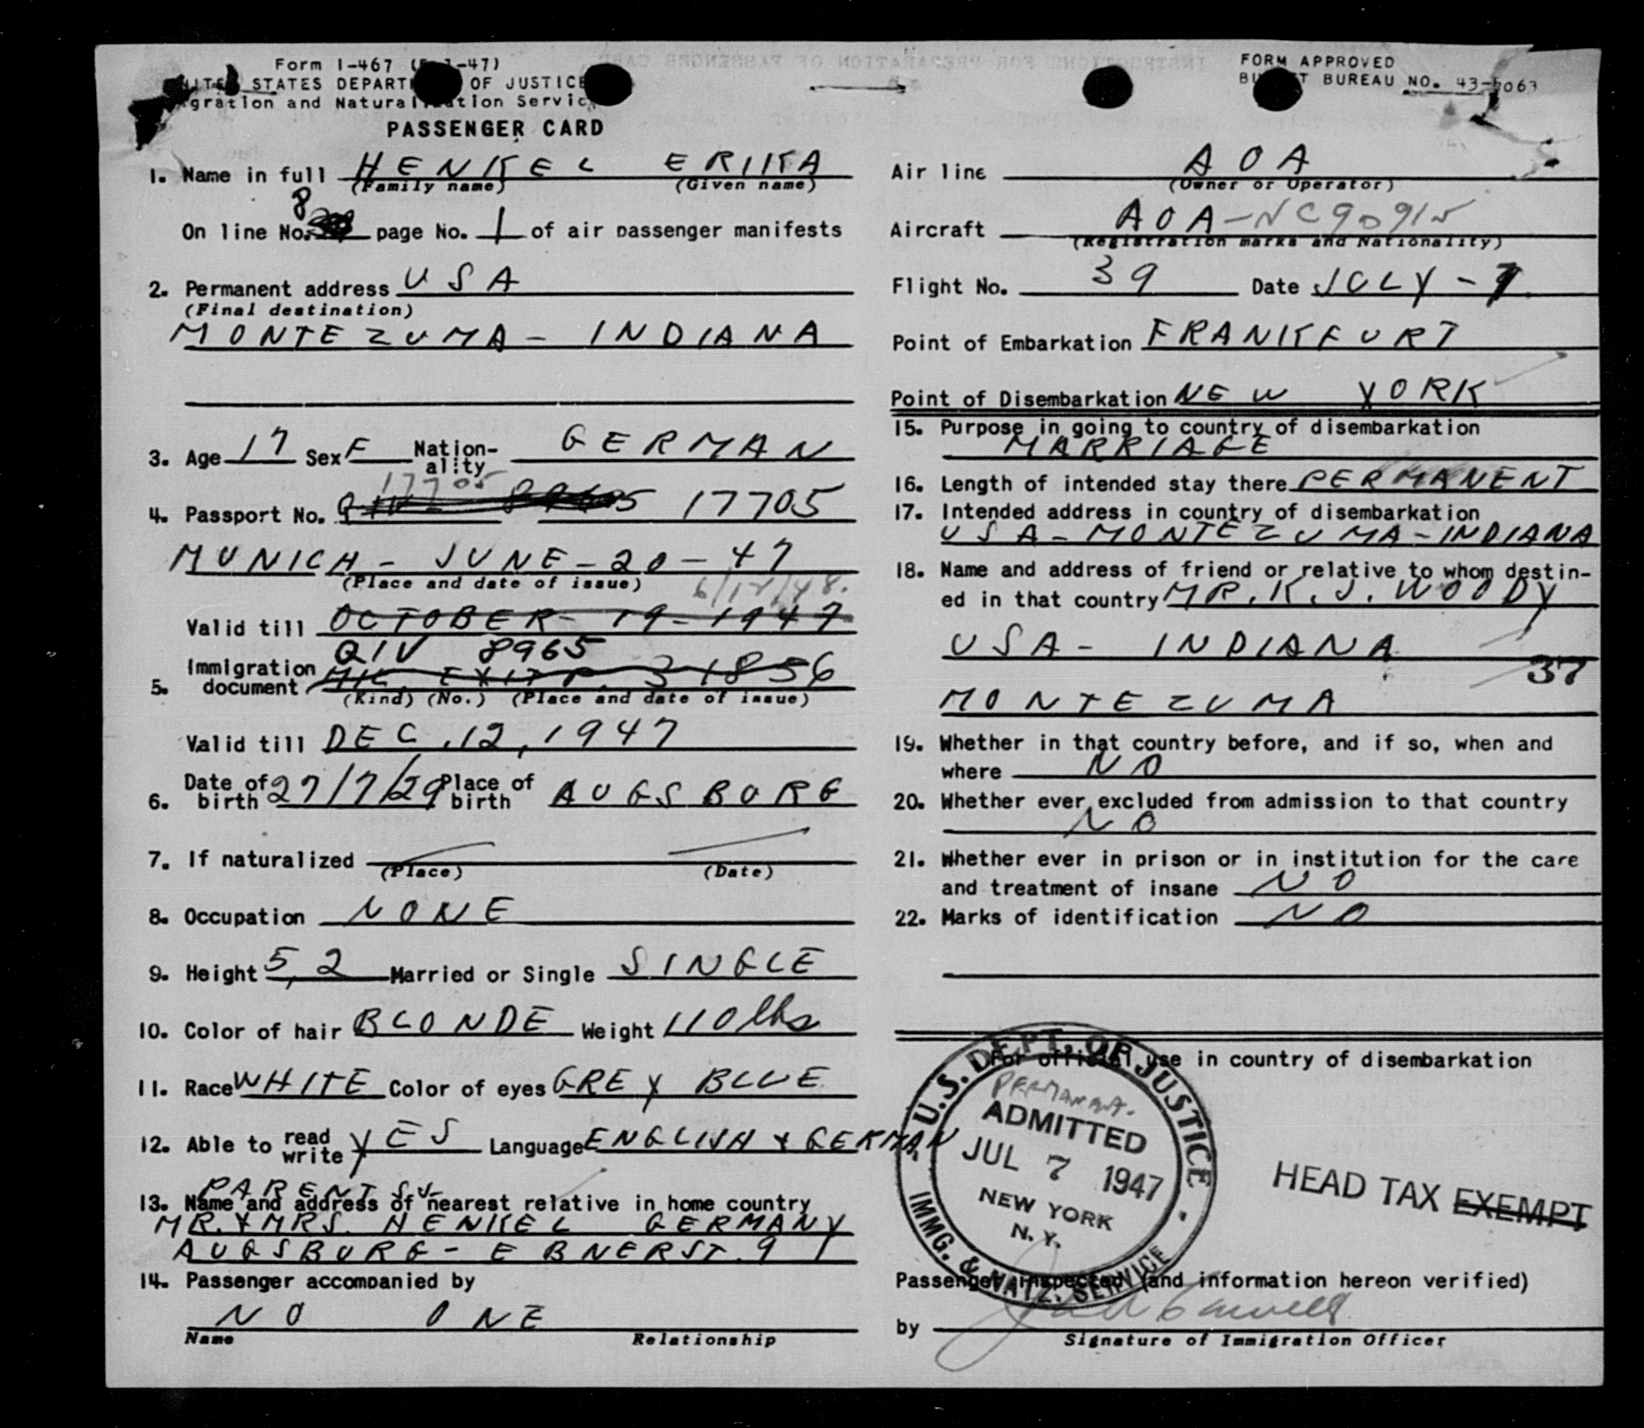 Form I-467
UNITED STATES DEPARTMENT OF JUSTICE
Immigration and Naturalization Service
PASSENGER CARD
FORM APPROVED
BUDGET BUREAU NO. 43-R063
1. Name in full HENKEL ERIKA
(Family name) (Given name)
On line No. 8 page No. 1 of air passenger manifests
2. Permanent address USA
(Final destination)
MONTEZUMA - INDIANA
3. Age 17 Sex F Nation-ality GERMAN
17705
4. Passport No. 17705
MUNICH - JUNE - 20 - 47
(Place and date of issue)
6/12/48.
Valid till OCTOBER - 19 - 1947
QIV 8965
5. Immigration document
(Kind) (No.) (Place and date of issue)
Valid till DEC. 12, 1947
6. Date of birth 27/7/29 Place of birth AUGSBURG
7. If naturalized
(Place) (Date)
8. Occupation NONE
9. Height 5,2 Married or Single SINGLE
10. Color of hair BLONDE Weight 110 lbs
11. Race WHITE Color of eyes GREY BLUE
12. Able to read write YES Language ENGLISH + GERMAN
PARENTS
13. Name and address of nearest relative in home country
MR. + MRS. HENKEL GERMANY
AUGSBURG - EBNERST. 9
14. Passenger accompanied by
NO ONE
Name Relationship
Air line AOA
(Owner or Operator)
Aircraft AOA - NC90915
(Registration marks and Nationality)
Flight No. 39 Date JULY - 7
Point of Embarkation FRANKFURT
Point of Disembarkation NEW YORK
15. Purpose in going to country of disembarkation
MARRIAGE
16. Length of intended stay there PERMANENT
17. Intended address in country of disembarkation
USA - MONTEZUMA - INDIANA
18. Name and address of friend or relative to whom destin-
ed in that country MR. K. J. WOODY
USA - INDIANA
37
MONTEZUMA
19. Whether in that country before, and if so, when and
where NO
20. Whether ever excluded from admission to that country
NO
21. Whether ever in prison or in institution for the care
and treatment of insane NO
22. Marks of identification NO
For official use in country of disembarkation
U.S. DEPT. OF JUSTICE
PERMANENT.
ADMITTED
JUL 7 1947
NEW YORK
N.Y.
IMMG. & NATZ. SERVICE
HEAD TAX EXEMPT
Passenger inspected (and information hereon verified)
by
Signature of Immigration Officer